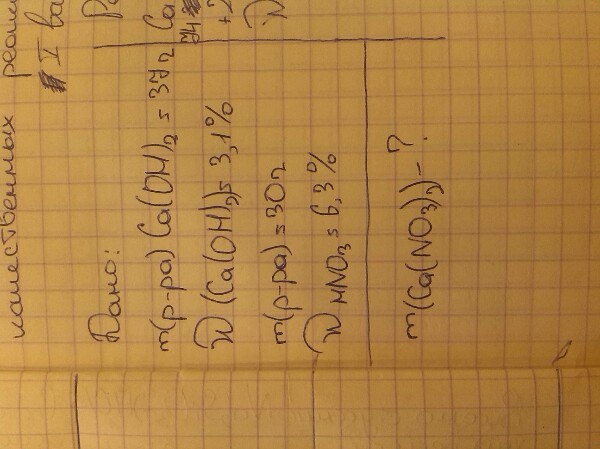 количественных реаки
I ва
Дано:
m(р-ра) Ca(OH)₂ = 37г
W(Ca(OH)₂) = 3,1%
m(р-ра) = 30г
W HNO₃ = 6,3%
m(Ca(NO₃)₂) - ?
Ca
74